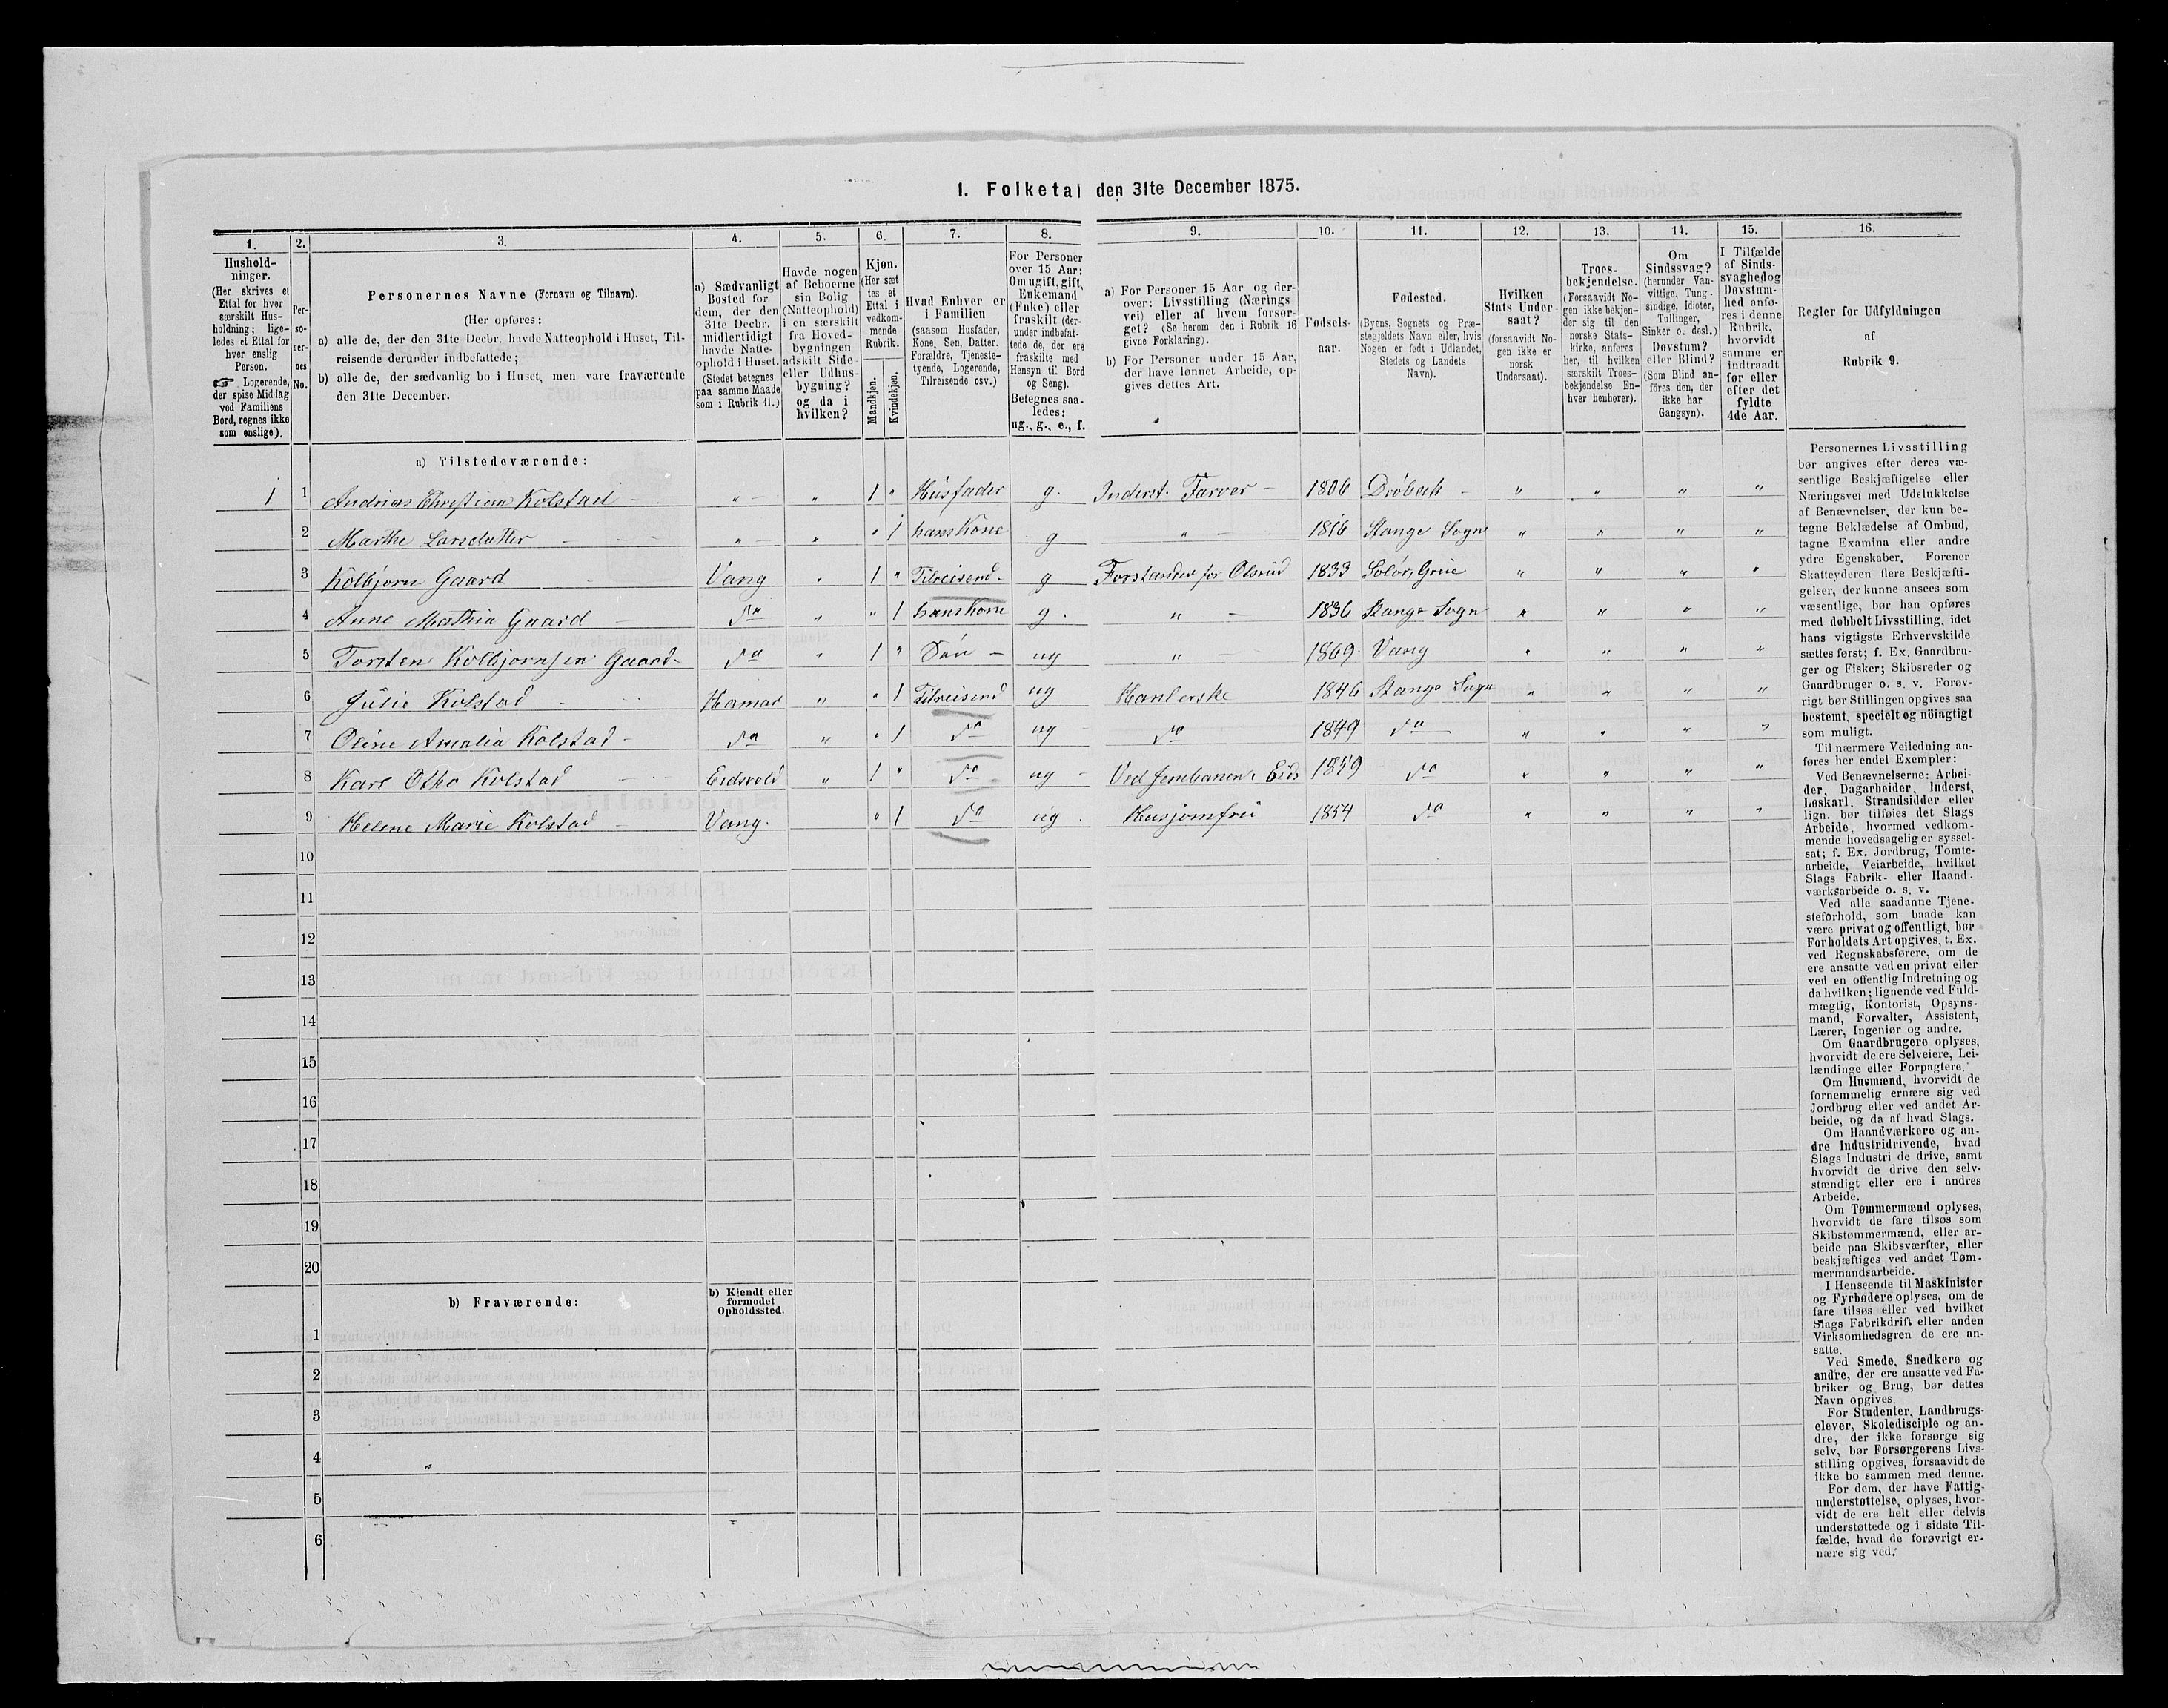 I. Folketal den 31te December 1875.
1. 2. 3. 4. 5. 6. 7. 8. 9. 10. 11. 12. 13. 14. 15. 16.
Hushold-
ninger.
(Her skrives et
Ettal for hver
særskilt Hus-
holdning; lige-
ledes et Ettal for
hver enslig
Person.
☞ Logerende,
der spise Middag
ved Familiens
Bord, regnes ikke
som enslige).
Per-
so-
ner-
nes
No.
Personernes Navne (Fornavn og Tilnavn).
(Her opføres:
a) alle de, der den 31te Decbr. havde Natteophold i Huset, Til-
reisende derunder indbefattede;
b) alle de, der sædvanlig bo i Huset, men vare fraværende
den 31te December.
a) Sædvanligt
Bosted for
dem, der den
31te Decbr.
midlertidigt
havde Natte-
ophold i Huset.
(Stedet betegnes
paa samme Maade
som i Rubrik 11.)
Havde nogen
af Beboerne
sin Bolig
(Natteophold)
i en særskilt
fra Hoved-
bygningen
adskilt Side-
eller Udhus-
bygning?
og da i
hvilken?
Kjøn.
(Her sæt
tes et
Ettal i
vedkom-
mende
Rubrik.
Mandkjøn.
Kvindekjøn.
Hvad Enhver er
i Familien
(saasom Husfader,
Kone, Søn, Datter,
Forældre, Tjeneste-
tyende, Logerende,
Tilreisende osv.)
For Personer
over 15 Aar:
Om ugift, gift,
Enkemand
(Enke) eller
fraskilt (der-
under indbefat-
tede de, der ere
fraskilte med
Hensyn til Bord
og Seng).
Betegnes saa-
ledes:
ug., g., e., f.
a) For Personer 15 Aar og der-
over: Livsstilling (Nærings
vei) eller af hvem forsør-
get? (Se herom den i Rubrik 16
givne Forklaring).
b) For Personer under 15 Aar,
der have lønnet Arbeide, op-
gives dettes Art.
Fødsels-
aar.
Fødested.
(Byens, Sognets og Præ-
stegjeldets Navn eller, hvis
Nogen er født i Udlandet,
Stedets og Landets
Navn).
Hvilken
Stats Under-
saat?
(forsaavidt No-
gen ikke er
norsk
Undersaat).
Troes-
bekjendelse.
(Forsaavidt No-
gen ikke bekjen-
der sig til den
norske Stats-
kirke, anføres
her, til hvilken
særskilt Troes-
bekjendelse En-
hver henhører).
Om
Sindssvag?
(herunder Van-
vittige, Tung-
sindige, Idioter,
Tullinger,
Sinker o. desl.)
Døvstum?
eller Blind?
(Som Blind an-
føres den, der
ikke har
Gangsyn).
I Tilfælde
af Sinds-
svaghed og
Døvstum-
hed anfø-
res i denne
Rubrik,
hvorvidt
samme er
indtraadt
før eller
efter det
fyldte
4de Aar.
Regler for Udfyldningen
af
Rubrik 9.
a) Tilstedeværende:
1 1 Andreas Christian Kolstad - " - " 1 " Husfader g. Inderst. Farver - 1806 Dröbak - " " " "
2 Marthe Larsdatter - " - " " 1 hans Kone g " - 1816 Stange Sogn " " " "
3 Kolbjørn Gaard Vang " 1 " Tilreisend. g Forstander for Olsrud 1833 Solör, Grue " " " "
4 Anne Mathia Gaard - do " " 1 hans Kone g. " - 1836 Stange Sogn " " " "
5 Torsten Kolbjørnsen Gaard - do " 1 " Sön - ug " - 1869 Vang " " " "
6 Julie Kolstad - Hamar " " 1 Tilreisend ug Hanlerske 1846 Stange Sogn " " " "
7 Oline Amalia Kolstad - do " " 1 do ug - do 1849 do " " " "
8 Karl Otho Kolstad - Eidsvold " 1 " do ug - Ved Jernbanen i Eids 1859 do " " " "
9 Helene Marie Kolstad - Vang. " 1 do ug. Husjomfru 1854 do " " " "
10
11
12
13
14
15
16
17
18
19
20
b) Fraværende:
b) Kjendt eller
formodet
Opholdssted.
1
2
3
4 "
5
6
Personernes Livsstilling
bør angives efter deres væ-
sentlige Beskjæftigelse eller
Næringsvei med Udelukkelse
af Benævnelser, der kun be-
tegne Beklædelse af Ombud,
tagne Examina eller andre
ydre Egenskaber. Forener
Skatteyderen flere Beskjæfti-
gelser, der kunne ansees som
væsentlige, bør han opføres
med dobbelt Livsstilling, idet
hans vigtigste Erhvervskilde
sættes først; f. Ex. Gaardbru-
ger og Fisker; Skibsreder og
Gaardbruger o. s. v. Forøv-
rigt bør Stillingen opgives saa
bestemt, specielt og nöiagtigt
som muligt.
Til nærmere Veiledning an-
føres her endel Exempler:
Ved Benævnelserne: Arbei-
der, Dagarbeider, Inderst,
Løskarl, Strandsidder eller
lign. bør tilføies det Slags
Arbeide, hvormed vedkom-
mende hovedsagelig er syssel-
sat; f. Ex. Jordbrug, Tomte-
arbeide, Veiarbeide, hvilket
Slags Fabrik- eller Haand-
værksarbeide o. s. v.
Ved alle saadanne Tjene-
steforhold, som baade kan
være privat og offentligt, bør
Forholdets Art opgives, t. Ex.
ved Regnskabsførere, om de
ere ansatte ved en privat eller
ved en offentlig Indretning og
da hvilken; lignende ved Fuld-
mægtig, Kontorist, Opsyns-
mand, Forvalter, Assistent,
Lærer, Ingeniør og andre.
Om Gaardbrugere oplyses,
hvorvidt de ere Selveiere, Lei-
lændinge eller Forpagtere.
Om Husmænd, hvorvidt de
fornemmelig ernære sig ved
Jordbrug eller ved andet Ar-
beide, og da af hvad Slags.
Om Haandværkere og an-
dre Industridrivende, hvad
Slags Industri de drive, samt
hvorvidt de drive den selv-
stændigt eller ere i andres
Arbeide.
Om Tømmermænd oplyses,
hvorvidt de fare tilsøs som
Skibstømmermænd, eller ar-
beide paa Skibsværfter, eller
beskjæftiges ved andet Tøm-
mermandsarbeide.
I Henseende til Maskinister
og Fyrbødere oplyses, om de
fare tilsøs eller ved hvilket
Slags Fabrikdrift eller anden
Virksomhedsgren de ere an-
satte.
Ved Smede, Snedkere og
andre, der ere ansatte ved Fa-
briker og Brug, bør dettes
Navn opgives.
For Studenter, Landbrugs-
elever, Skoledisciple og an-
dre, der ikke forsørge sig
selv, bør Forsørgerens Livs-
stilling opgives, forsaavidt de
ikke bo sammen med denne.
For dem, der have Fattig-
understøttelse, oplyses, hvor-
vidt de ere helt eller delvis
understøttede og i sidste Til-
fælde, hvad de forøvrigt er-
nære sig ved.